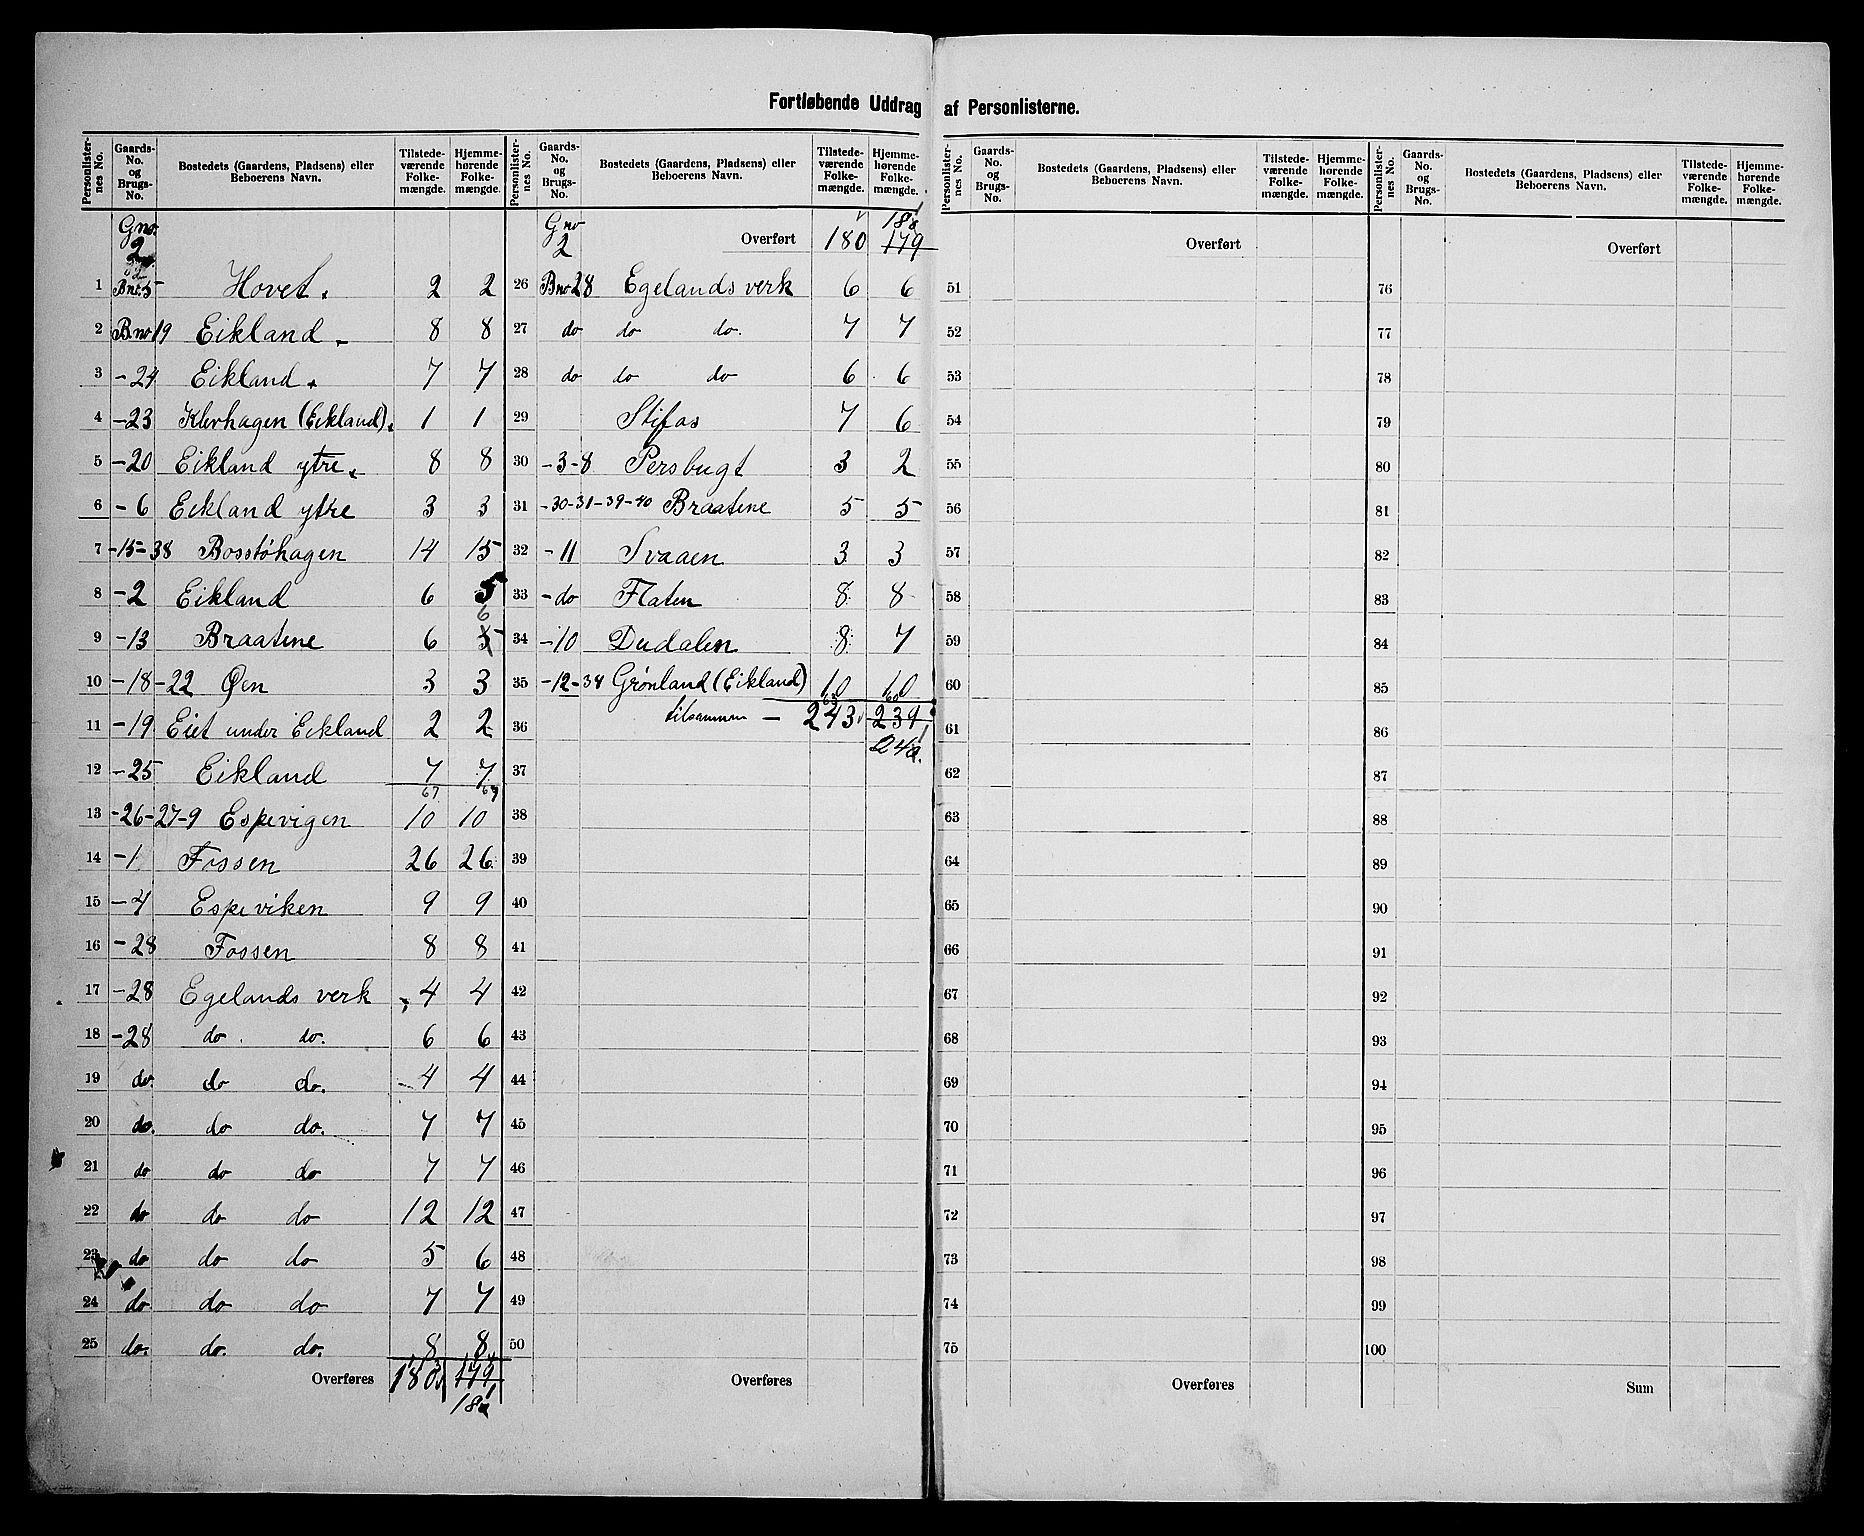 Fortløbende Uddrag af Personlisterne.
Personlister-nes No. | Gaards-No. og Brugs-No. | Bostedets (Gaardens, Pladsens) eller Beboerens Navn. | Tilstede-værende Folke-mængde. | Hjemme-hørende Folke-mængde.
Gno. 2
1 Bno. 5 Hovet. 2 2
2 B.no 19 Eikland 8 8
3 -24 Eikland. 7 7
4 -23 Klevhagen (Eikland). 1 1
5 -20 Eikland ytre. 8 8
6 -6 Eikland ytre 3 3
7 -15-38 Bosstøhagen 14 15
8 -2 Eikland 6 5
9 -13 Braatene 6 5 6
10 -18-22 Øen 3 3
11 -19 Eiet under Eikland 2 2
12 -25 Eikland 7 7
67 67
13 -26-27-9 Espevigen 10 10
14 -1 Fossen 26 26
15 -4 Espeviken 9 9
16 -28 Fossen 8 8
17 -28 Egelands verk 4 4
18 -28 do do. 6 6
19 do. do do. 4 4
20 do. do do. 7 7
21 do do do 7 7
22 do do do 12 12
23 do do do 5 6
24 do do do 7 7
25 do. do. do. 8 8
Overføres 180 179
180
Personlister-nes No. | Gaards-No. og Brugs-No. | Bostedets (Gaardens, Pladsens) eller Beboerens Navn. | Tilstede-værende Folke-mængde. | Hjemme-hørende Folke-mængde.
Gno 2 Overført 180 179
26 Bno 28 Egelands verk 6 6
27 do do do. 7 7
28 do do do 6 6
29 Stifos 7 6
30 -3-8 Persbugt 3 2
31 -30-31-39-40 Braatene 5 5
32 -11 Svaaen 3 3
33 -do Flaten 8 8
34 -10 Dudalen 8 7
35 -12-34 Grønland (Eikland) 10 10
36 tilsammen - 243 239
240.
37
38
39
40
41
42
43
44
45
46
47
48
49
50
Overføres
Personlister-nes No. | Gaards-No. og Brugs-No. | Bostedets (Gaardens, Pladsens) eller Beboerens Navn. | Tilstede-værende Folke-mængde. | Hjemme-hørende Folke-mængde.
Overført
51
52
53
54
55
56
57
58
59
60
61
62
63
64
65
66
67
68
69
70
71
72
73
74
75
Overføres
Personlister-nes No. | Gaards-No. og Brugs-No. | Bostedets (Gaardens, Pladsens) eller Beboerens Navn. | Tilstede-værende Folke-mængde. | Hjemme-hørende Folke-mængde.
Overført
76
77
78
79
80
81
82
83
84
85
86
87
88
89
90
91
92
93
94
95
96
97
98
99
100
Sum